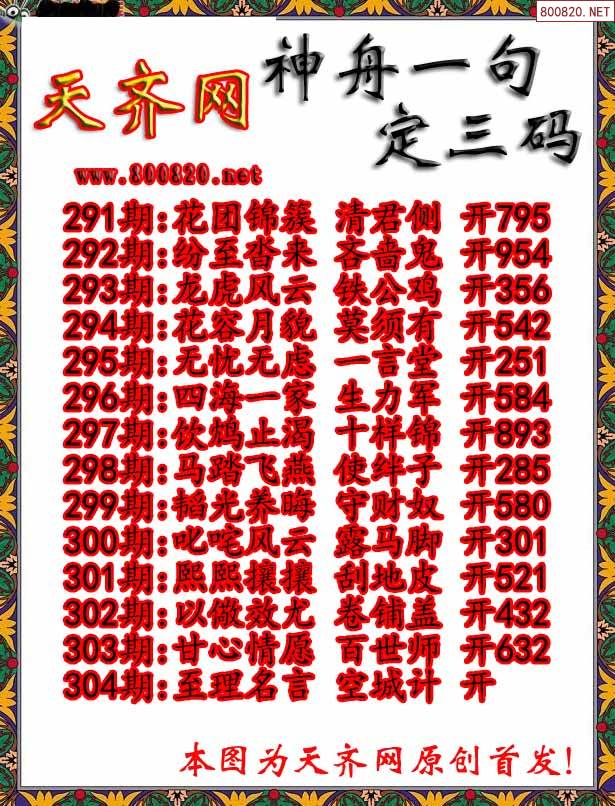 800820.NET
天齐网
神舟一句
定三码
www.800820.net
291期:花团锦簇 清君侧 开795
292期:纷至沓来 吝啬鬼 开954
293期:龙虎风云 铁公鸡 开356
294期:花容月貌 莫须有 开542
295期:无忧无虑 一言堂 开251
296期:四海一家 生力军 开584
297期:饮鸩止渴 十样锦 开893
298期:马踏飞燕 使绊子 开285
299期:韬光养晦 守财奴 开580
300期:叱咤风云 露马脚 开301
301期:熙熙攘攘 刮地皮 开521
302期:以儆效尤 卷铺盖 开432
303期:甘心情愿 百世师 开632
304期:至理名言 空城计 开
本图为天齐网原创首发!